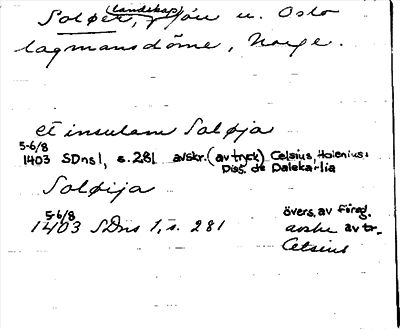 Soløer, (landskap) n. Oslo
lagmansdöme, Norge.
et insulam Soløja
5-6/8
1403 SDns 1, s. 281 avskr. (avtryck) Celsius, Holenius:
Diss. de Dalekarlia
Soløija
5-6/8 övers. av föreg.
1403 SDns 1, s. 281 avtr.
Celsius